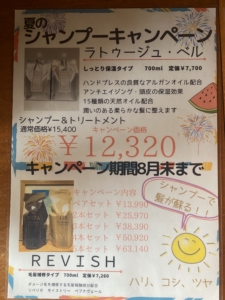 夏の
シャンプーキャンペーン
ラトゥージュ・ベル
しっとり保湿タイプ 700ml 定価￥7,700
ハンドプレスの良質なアルガンオイル配合
アンチエイジング・頭皮の保湿効果
15種類の天然オイル配合
潤いのある柔らかな髪に整えます
シャンプー&トリートメント
通常価格¥15,400
キャンペーン価格
￥12,320
キャンペーン期間8月末まで
キャンペーン内容
ペア ￥13,990
本セット ￥25,970
本セット ￥38,390
本セット ￥50,920
本セット ￥63,140
シャンプーで
髪が蘇る!!
REVISH
毛髪補修タイプ 700ml 定価￥7,260
ハリ、コシ、ツヤ